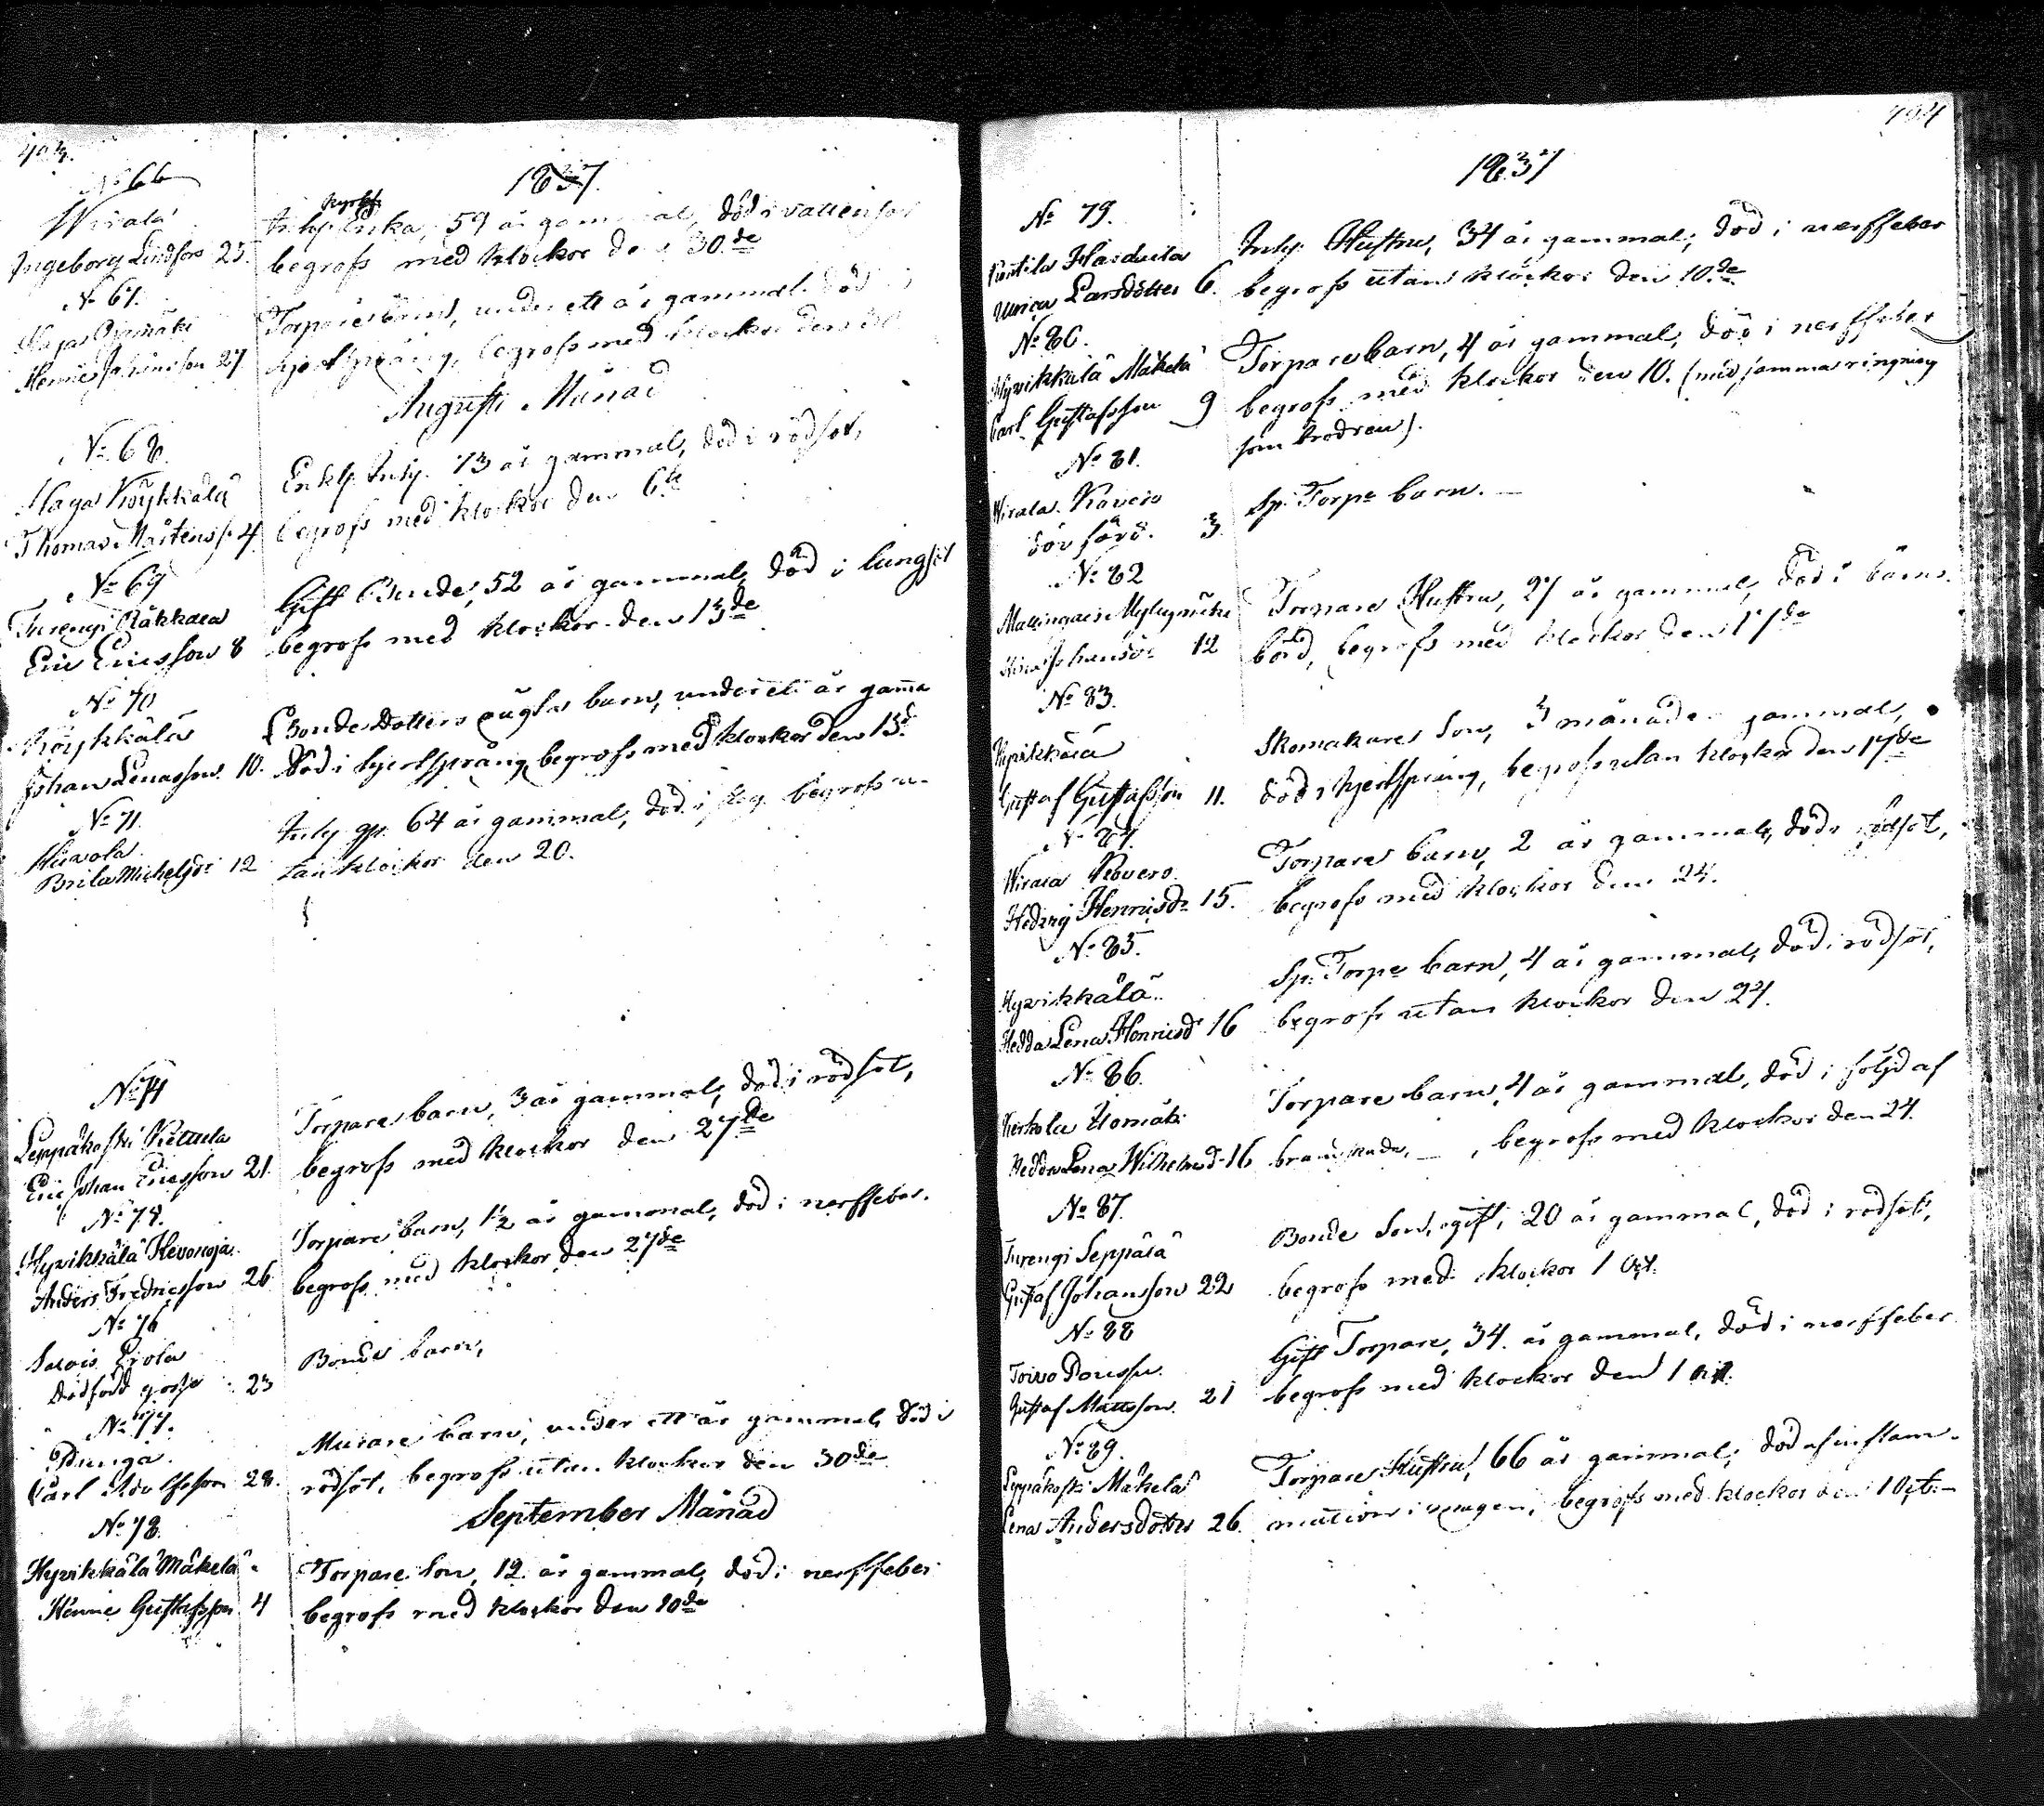 403.
1837.
No 66
Wirala
Ingeborg Lindfors 25.
Inhys Enka, 59 år gammal, död i vattensot
begrofs med klockor den 30.de
No 67.
Haga Ojamäki
Henric Johansson 27
Torpare barn, under ett år gammal, död i
hjertsprång, begrofs med klockor den 30
Augusti Månad
No 68.
Haga Köykkälä
Thomas Mårtenss. 4
Enkl. Inhy. 73 år gammal, död i rödsot,
begrofs med klockor den 6te
No 69
Turengi Räkkälä
Eric Ericsson 8
Gift Bonde, 52 år gammal, död i lungsot
begrofs med klockor den 13de
No 70
Köykkälä
Johan Lenasson 10.
Bonde Dotters oägta barn, under ett år gamma
död i hjertsprång, begrofs med klockor den 13de
No 71.
Brita Michelsdr 12
Inhy gr. 64 år gammal, död i begrofs u-
tan klockor den 20.
No 74
Leppäkoski Kettula
Eric Johan Ericsson 21.
Torpare barn, 3 år gammal, död i rödsot,
begrofs med klockor den 27de
No 75.
Hyvikkälä Hevonoja
Anders Fredricsson 26
Torpare barn, 1½ år gammal, död i nerffeber.
begrofs med klockor den 27de
No 76
Salois Erola
dödfödd gosse 23
Bonde barn,
No 77.
Punga.
Carl Adolfsson 28.
Murare barn, under ett år gammal, död i
rödsot, begrofs utan klockor den 30de
September Månad
No 78.
Hyvikkälä Mäkelä
Henric Gustafsson 4
Torpare Son, 12 år gammal, död i nerffeber
begrofs med klockor den 10de
404
1837
No 79.
Ulrica Larsdotter 6.
Inhy. Hustru, 34 år gammal, död i nerffeber
begrofs utan klockor den 10.de
No 80.
Hyvikkälä Mäkelä
Carl Gustafsson 9
Torpare barn, 4 år gammal, död i nerffeber
begrofs med klockor den 10. (med samma ringning
som brodren).
No 81.
Wirala Rovero
död född. 3
Sp. Torpe barn. —
No 82
Mallingais Myllymäki
Johansdr 12
Torpare Hustru, 27 år gammal, död i barns-
börd, begrofs med klockor den 17de
No 83.
Hyvikkälä
Gustaf Gustafsson 11.
Skomakare Son, 3 månader gammal,
död i hjertsprång, begrofs utan klockor den 17de
No 84.
Wirala Rovero
Hedvig Henricsdr 15.
Torpare barn, 2 år gammal, död i rödsot,
begrofs med klockor den 24.
No 85.
Hyvikkälä
Hedda Lena Henricsd 16
Sp. Torpe barn, 4 år gammal, död i rödsot,
begrofs utan klockor den 24.
No 86.
Kerkola Uomäki
Hedda Lena Wilhelmsd 16
Torpare barn, 4 år gammal, död i följd af
brännskada, — , begrofs med klockor den 24.
No 87.
Turengi Seppälä
Gustaf Johansson 22
Bonde Son, ogift, 20 år gammal, död i rödsot,
begrofs med klockor 1 Oct.
No 88
Gustaf Mattsson 21
Gift Torpare, 34 år gammal, död i nerffeber
begrofs med klockor den 1 Oct.
No 89.
Leppäkoski Mäkelä
Lena Andersdotter 26.
Torpare Hustru, 66 år gammal, död af inflam-
mation i magen, begrofs med klockor den 1 Oct.—